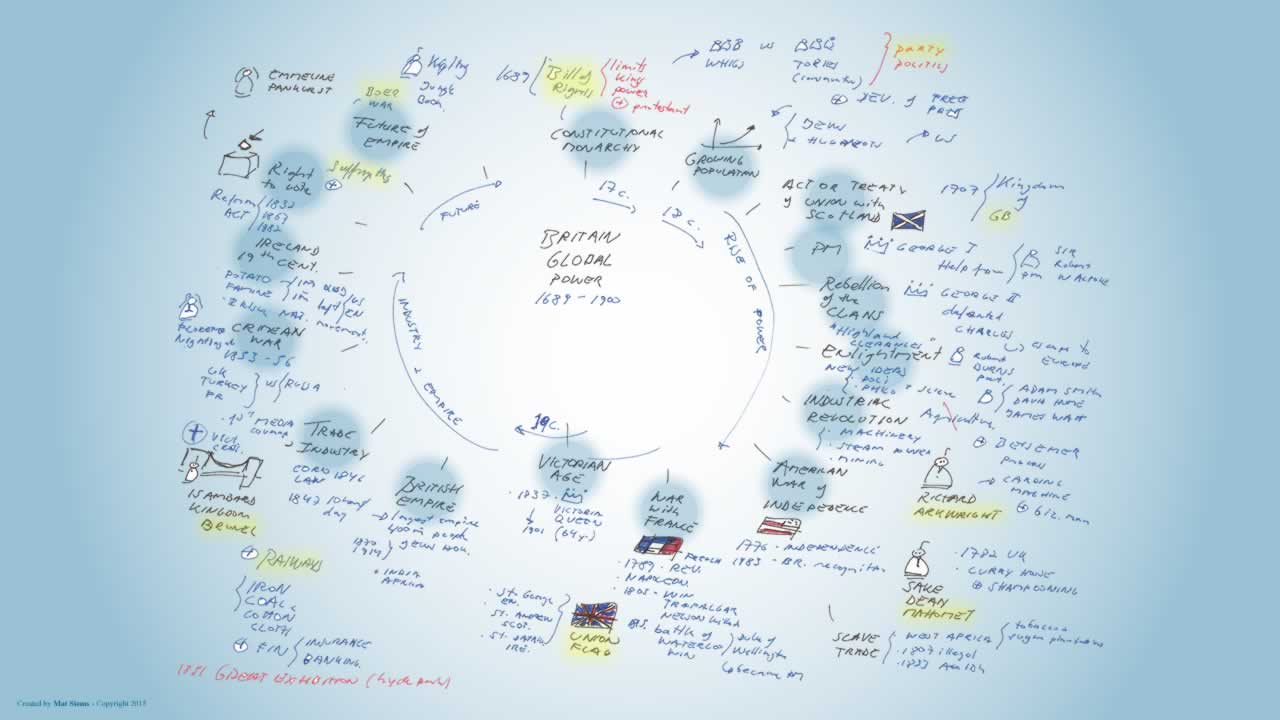 BRITAIN
GLOBAL
POWER
1689 - 1900
17c.
18c.
RISE OF POWER
19c.
INDUSTRY & EMPIRE
FUTURE
1689
Bill of
Rights
limits
King
power
+ protestant
CONSTITUTIONAL
MONARCHY
WHIGS
vs
TORIES
PARTY
POLITICS
+ DEV. of FREE
PRESS
GROWING
POPULATION
JEWS
HUGUENOTS
US
ACT OR TREATY
of UNION with
SCOTLAND
1707
Kingdom
of
GB
PM
GEORGE I
Help from
SIR
Robert
WALPOLE
PM
Rebellion
of the
CLANS
GEORGE II
defeated
CHARLES
escape to
EUROPE
"Highland
CLEARANCES"
ENLIGHTMENT
Robert
BURNS
NEW IDEAS
POLI
PHILO + Science
ADAM Smith
DAVID HUME
JAMES WATT
INDUSTRIAL
REVOLUTION
Agriculture
· MACHINERY
· STEAM POWER
· MINING
+ BESEMER
process
RICHARD
ARKWRIGHT
→ CARDING
MACHINE
AMERICAN
WAR of
INDEPEDENCE
1776 · INDEPENDENCE
1783 - BR. recognition
SAKE
DEAN
MAHOMET
· 1782 UK
· CURRY HOUSE
+ SHAMPOONING
SLAVE
TRADE
· WEST AFRICA
· 1807 illegal
· 1833 Abolish
tobacco
sugar plantations
WAR
with
FRANCE
· 1789 · FRENCH
REV.
· NAPOLEON
· 1805 - WIN
TRAFALGAR
NELSON killed
battle of
WATERLOO
WIN
Duke of
Wellington
became PM
UNION
FLAG
· St. George
EN.
· St. ANDREW
SCOT.
· St. PATRICK
IRE.
VICTORIAN
AGE
· 1837
VICTORIA
QUEEN
1901 (64y)
BRITISH
EMPIRE
→ largest empire
400m people
1870
1914
JEWS
· INDIA
AFRICA
TRADE
& INDUSTRY
CORN 1846
LAW
1847 10 hour
day
ISAMBARD
KINGDOM
BRUNEL
+ RAILWAYS
IRON
COAL
COTTON
CLOTH
+ FIN
INSURANCE
BANKING
1851 GREAT EXHIBITION (hyde park)
CRIMEAN
WAR
1853 - 56
FLORENCE
Nightingale
UK
TURKEY
FR
vs RUSSIA
· 1st MEDIA
coverage
VICT.
CROSS
IRELAND
19th CENT.
POTATO
FAMINE
1m DIED
1m left
US
EN
· IRISH NAT. movement
Right
to vote
Reform
ACT
1832
1867
1882
+ Suffragettes
EMMELINE
PANKHURST
BOER
WAR
FUTURE of
EMPIRE
Kipling
Jungle
Book
Created by Mat Siems - Copyright 2015